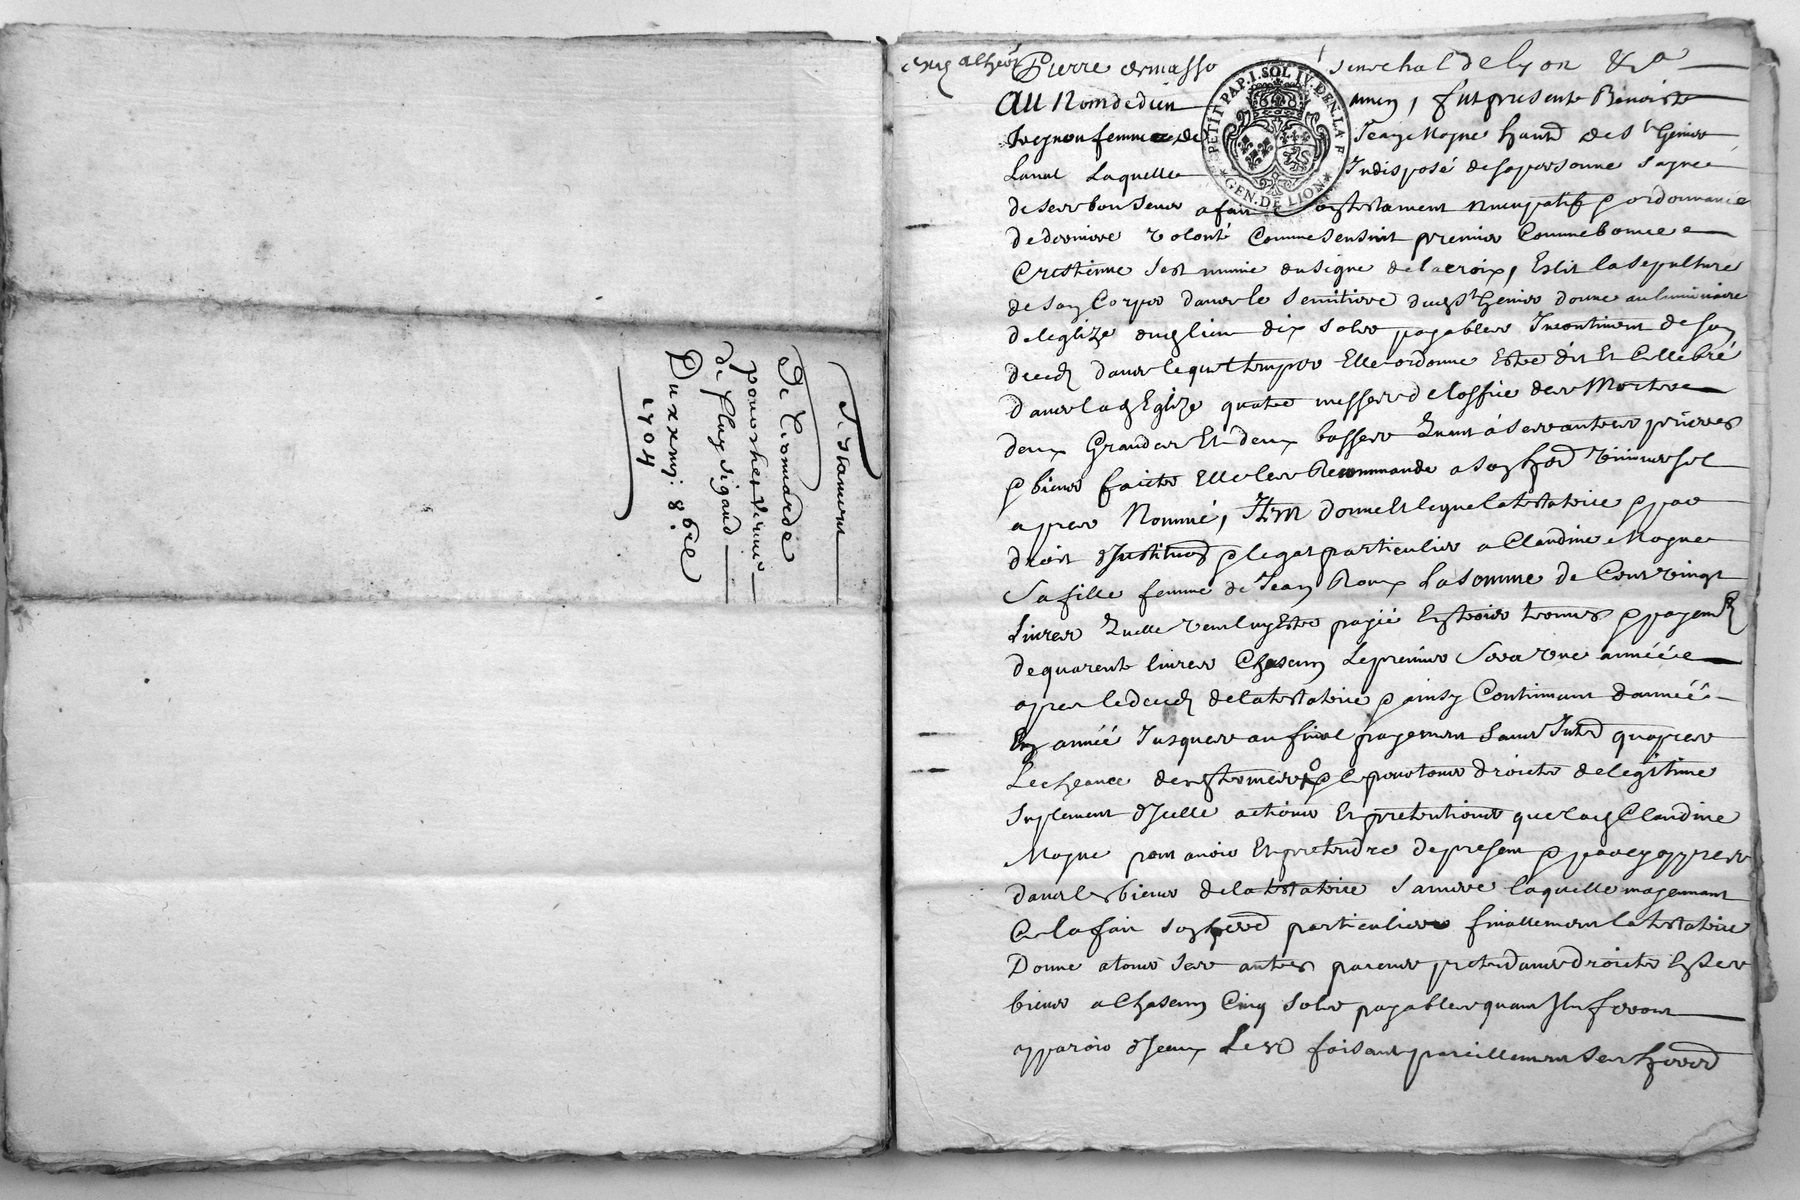 Testament
De Leonarde
pour sher
de Play sigaud
Du xxvij 8bre
1704
Pierre senechal de Lyon &a
PETIT PAP. I. SOL IV. DEN. LA F.
GEN. DE LION
Au Nom de dieu amen, fut presente Benoiste
femme de Jean Magne habt de St Genis
Laval Laquelle Indisposé de sa personne sayne
de ses bon sens a fait son testament nuncupatif & ordonnance
de derniere volonté Comme sensuit premier Comme bonne
Crestienne sest munie du signe de la croix, Eslit la sepulture
de son Corps dans le semitiere dud St Genis donne au luminaire
de leglize dud lieu dix solz payables Incontinent de son
deced dans lequel temps Elle ordonne Estre dit Et Cellebré
dans lad Eglize quatre messes de loffice des Mortz
deux Grandes Et deux basses quant a ses autres prieres
& biens faictz Elle les Recommande a son herd universel
apres Nommé, Itm donne Et legue la testatrice & par
droit dInstitution & legat particulier a Claudine Magne
Sa fille femme de Jean Roux La somme de Cent vingt
Livres quelle veut luy Estre payé En trois termes & payemen
de quarente livres Chascun Le premier Sera une année
apres le deced de la testatrice & ainsy Continuant dannéé
En année Jusques au final payement sans Intd quapres
Lecheance desd termes & ce pour tous droictz de legitime
suplement dIcelle actions Et pretentions que lad Claudine
Magne peut avoir Et pretendre de present & par cy appres
dans les biens de la testatrice sa mere laquelle moyennant
Ce la fait son herd particuliere finallement la testatrice
Donne a tous ses autres parens pretendans droictz En ses
biens a Chascun Cinq solz payables quant Ilz feront
apparoir dIceux Les faisant pareillement ses herd